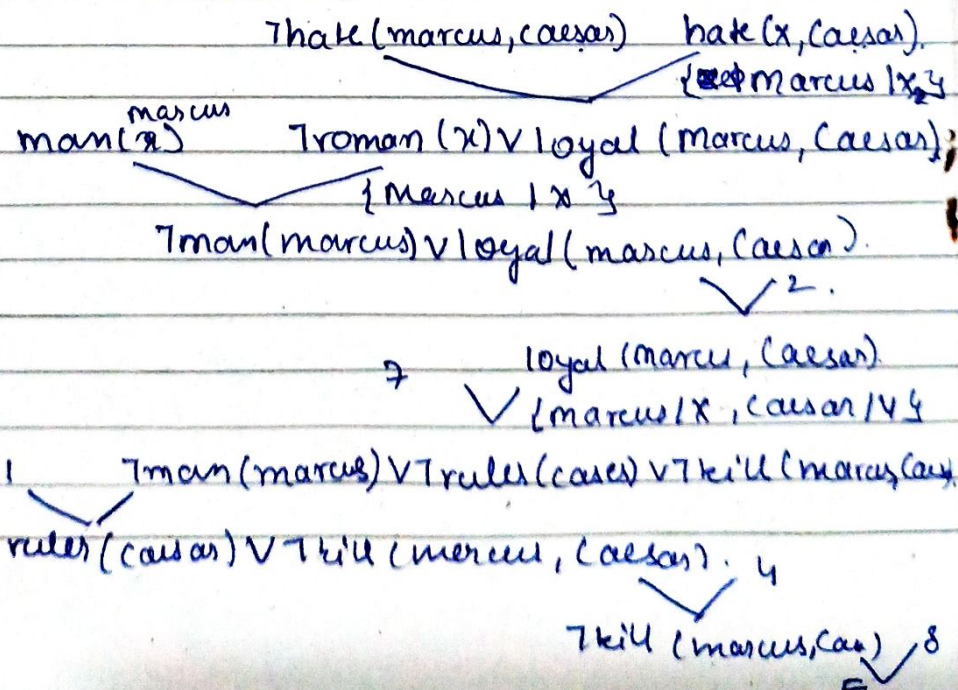 7hate(marcus, caesar) hate(x, Caesar).
{marcus|x}
marcus
man(x) 7roman(x) V loyal (Marcus, Caesar);
{Marcus | x}
7man(marcus) V loyal(marcus, Caesar).
2.
7 loyal (Marcus, Caesar)
{marcus|X, caesar|Y}
1 7man(marcus) V 7rules(caser) V 7kill (marcus, Caes).
rules(caesar) V 7kill (mercus, Caesar). 4
7kill (marcus, Cae) 8
5